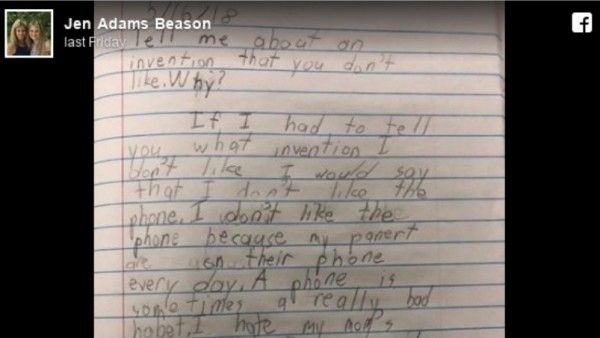 Jen Adams Beason
last Friday
Tell me about an
invention that you don't
like. Why?
If I had to tell
you what invention I
don't like I would say
that I don't like the
phone. I don't like the
phone because my panert
are on their phone
every day. A phone is
sometimes a really bad
habet. I hate my mom's